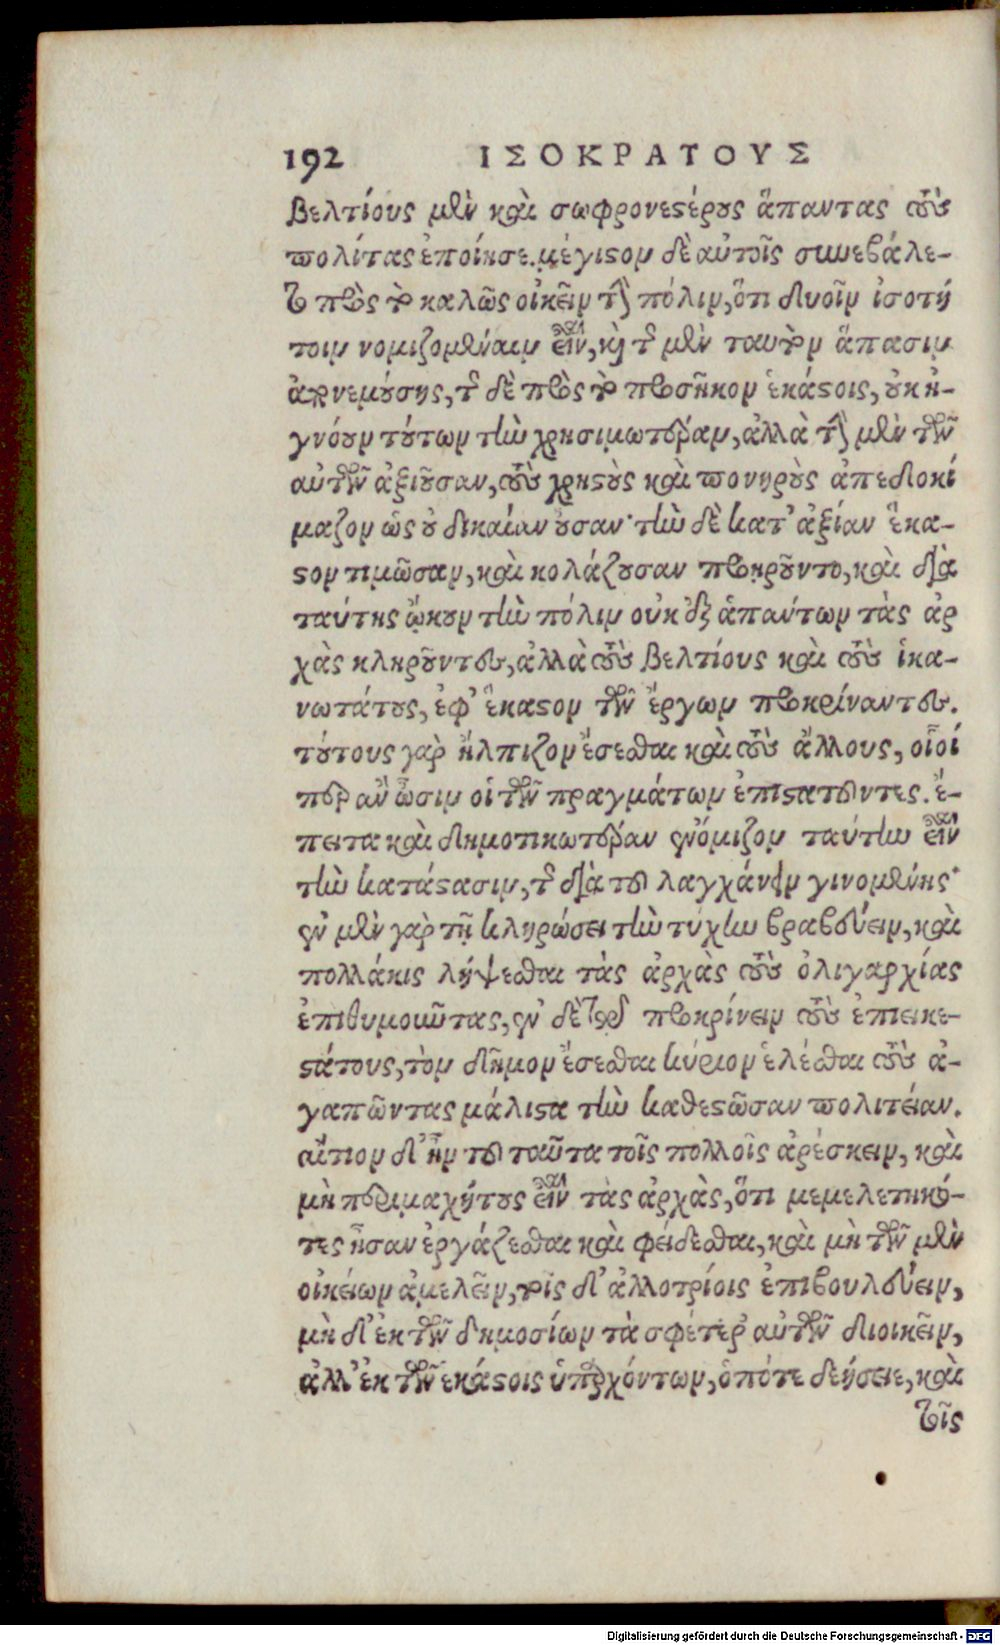 192 ΙΣΟΚΡΑΤΟΥΣ
βελτίους μὲν καὶ σωφρονεστέρους ἅπαντας τοὺς
πολίτας ἐποίησε. μέγιστον δὲ αὐτοῖς συνεβάλε-
το πρὸς τὸ καλῶς οἰκεῖν τὴν πόλιν, ὅτι δυοῖν ἰσοτή
τοιν νομιζομέναιν εἶναι, καὶ τῆς μὲν ταυτὸν ἅπασιν
ἀπονεμούσης, τῆς δὲ πρὸς τὸ προσῆκον ἑκάστοις, οὐκ ἠ-
γνόουν τούτων τὴν χρησιμωτέραν, ἀλλὰ τὴν μὲν τῶν
αὐτῶν ἀξιοῦσαν, τοὺς χρηστοὺς καὶ πονηροὺς ἀπεδοκί
μαζον ὡς οὐ δικαίαν οὖσαν· τὴν δὲ κατ' ἀξίαν ἕκα-
στον τιμῶσαν, καὶ κολάζουσαν προῃροῦντο, καὶ διὰ
ταύτης ᾤκουν τὴν πόλιν οὐκ ἐξ ἁπάντων τὰς ἀρ
χὰς κληροῦντες, ἀλλὰ τοὺς βελτίους καὶ τοὺς ἱκα-
νωτάτους, ἐφ' ἕκαστον τῶν ἔργων προκρίναντες.
τούτους γὰρ ἤλπιζον ἔσεσθαι καὶ τοὺς ἄλλους, οἷοί
περ ἂν ὦσιν οἱ τῶν πραγμάτων ἐπιστατοῦντες. ἔ-
πειτα καὶ δημοτικωτέραν ἐνόμιζον ταύτην εἶναι
τὴν κατάστασιν, τῆς διὰ τοῦ λαγχάνειν γινομένης·
ἐν μὲν γὰρ τῇ κληρώσει τὴν τύχην βραβεύειν, καὶ
πολλάκις λήψεσθαι τὰς ἀρχὰς τοὺς ὀλιγαρχίας
ἐπιθυμοῦντας, ἐν δὲ τῷ προκρίνειν τοὺς ἐπιεικε-
στάτους, τὸν δῆμον ἔσεσθαι κύριον ἑλέσθαι τοὺς ἀ-
γαπῶντας μάλιστα τὴν καθεστῶσαν πολιτείαν.
αἴτιον δ' ἦν τοῦ ταῦτα τοῖς πολλοῖς ἀρέσκειν, καὶ
μὴ περιμαχήτους εἶναι τὰς ἀρχὰς, ὅτι μεμελετηκό-
τες ἦσαν ἐργάζεσθαι καὶ φείδεσθαι, καὶ μὴ τῶν μὲν
οἰκείων ἀμελεῖν, τοῖς δ' ἀλλοτρίοις ἐπιβουλεύειν,
μὴ δ' ἐκ τῶν δημοσίων τὰ σφέτερ' αὐτῶν διοικεῖν,
ἀλλ' ἐκ τῶν ἑκάστοις ὑπαρχόντων, ὁπότε δεήσειε, καὶ
τοῖς
Digitalisierung gefördert durch die Deutsche Forschungsgemeinschaft - DFG